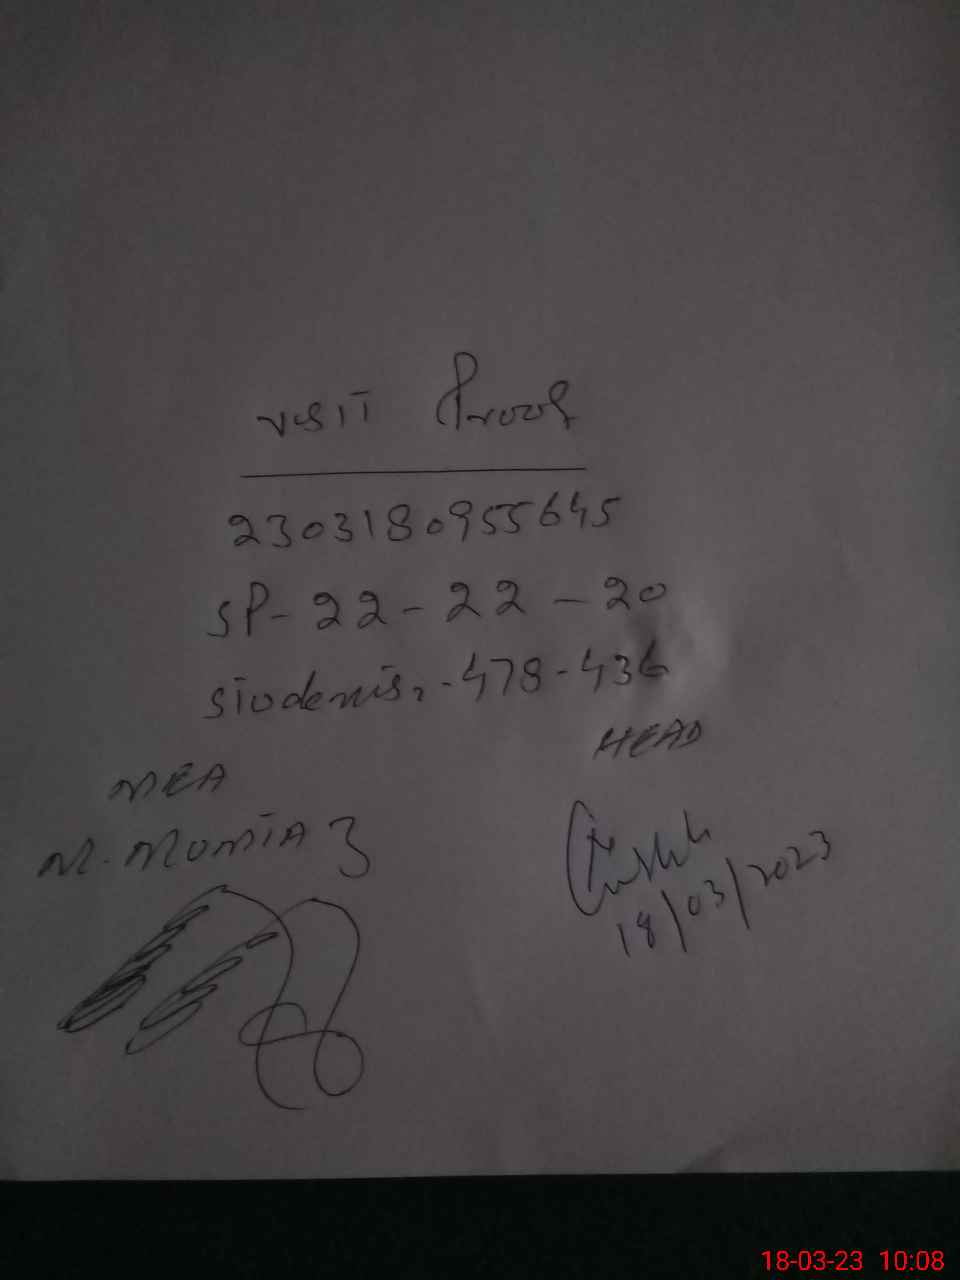 VISIT Proof
2303180955645
SP-22-22-20
Students:-478-436
HEAD
MEA
M. MUMTAZ
18/03/2023
18-03-23 10:08